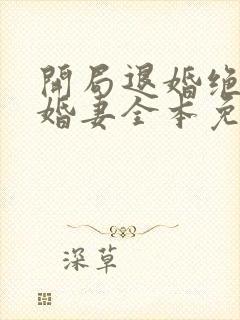 開局退婚绝
婚妻全本免
深草